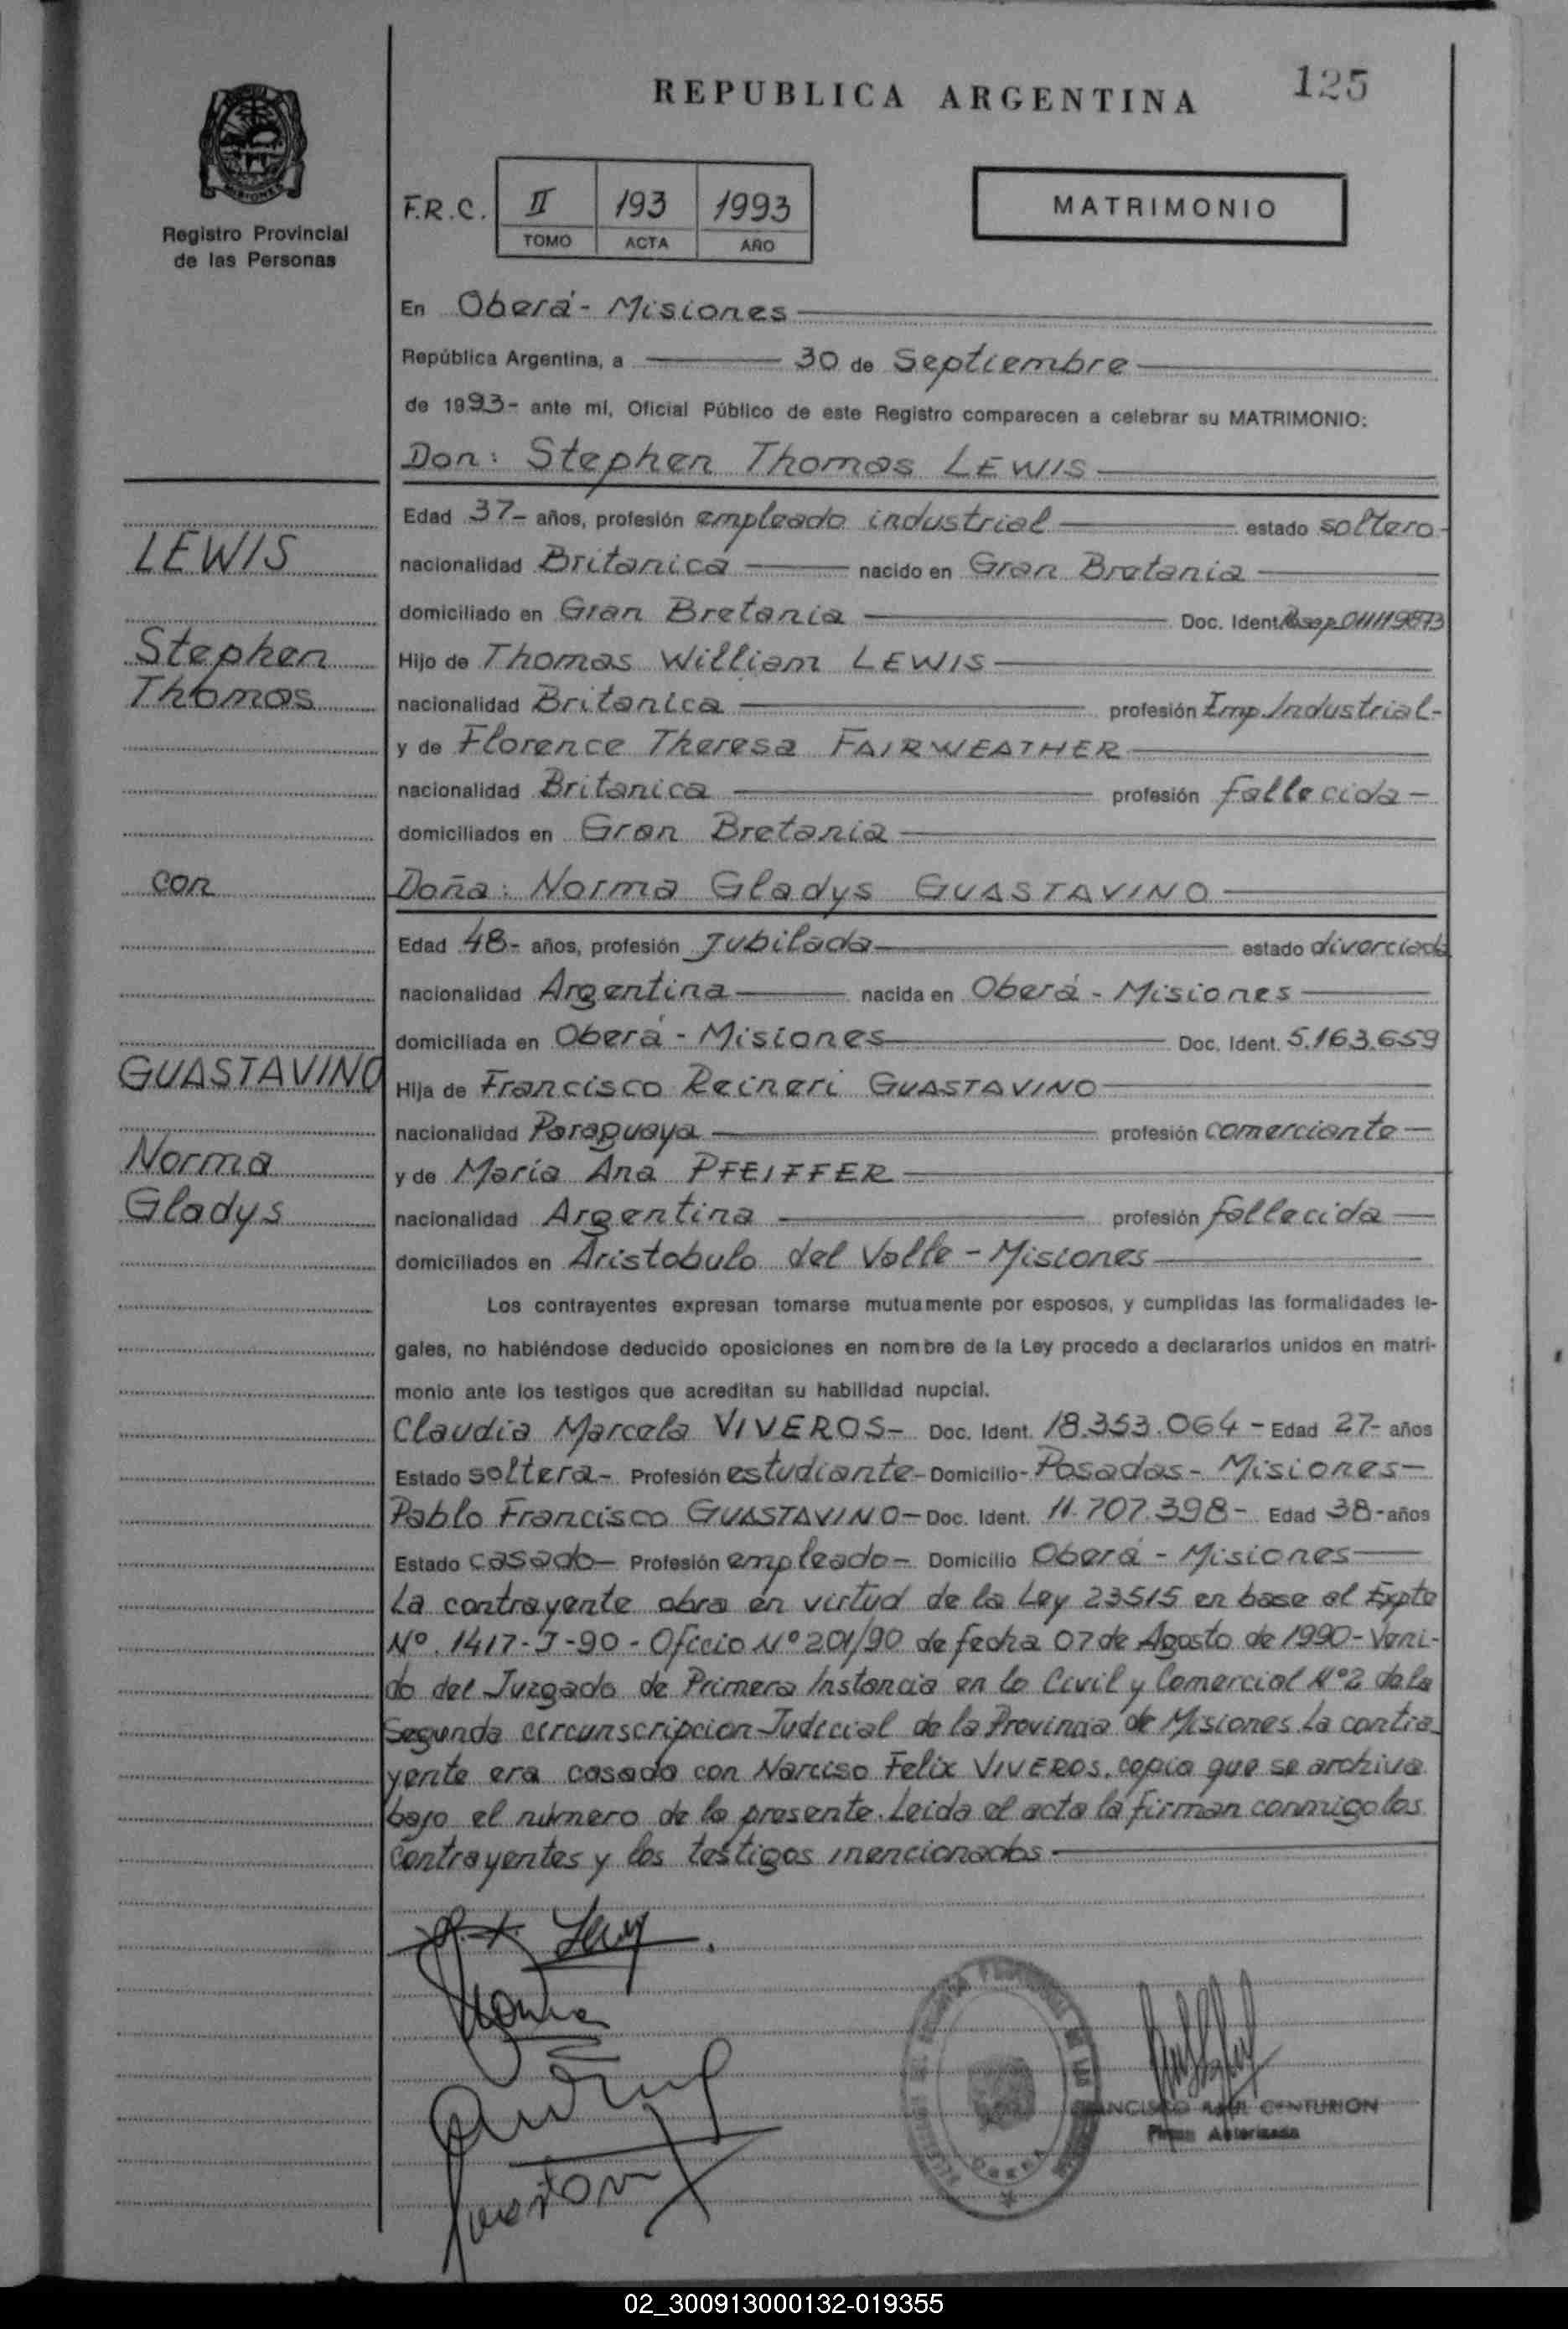 REPUBLICA ARGENTINA
125
MISIONES
Registro Provincial
de las Personas
F.R.C.
II 193 1993
TOMO ACTA AÑO
MATRIMONIO
En Oberá - Misiones
República Argentina, a 30 de Septiembre
de 1993- ante mi, Oficial Público de este Registro comparecen a celebrar su MATRIMONIO:
Don: Stephen Thomas LEWIS
Edad 37- años, profesión empleado industrial estado soltero-
LEWIS
nacionalidad Britanica nacido en Gran Bretania
domiciliado en Gran Bretania Doc. Ident.
Stephen
Hijo de Thomas William LEWIS
Thomas
nacionalidad Britanica profesión Emp. Industrial-
y de Florence Theresa FAIRWEATHER
nacionalidad Britanica profesión fallecida-
domiciliados en Gran Bretania
con
Doña: Norma Gladys GUASTAVINO
Edad 48- años, profesión Jubilada estado divorciada
nacionalidad Argentina nacida en Oberá - Misiones
domiciliada en Oberá - Misiones Doc. Ident. 5.163.659
GUASTAVINO
Hija de Francisco Reineri GUASTAVINO
nacionalidad Paraguaya profesión comerciante-
Norma
y de María Ana PFEIFFER
Gladys
nacionalidad Argentina profesión fallecida
domiciliados en Aristobulo del Valle - Misiones
Los contrayentes expresan tomarse mutuamente por esposos, y cumplidas las formalidades le-
gales, no habiéndose deducido oposiciones en nombre de la Ley procedo a declararlos unidos en matri-
monio ante los testigos que acreditan su habilidad nupcial.
Claudia Marcela VIVEROS- Doc. Ident. 18.353.064- Edad 27- años
Estado soltera- Profesión estudiante- Domicilio- Posadas- Misiones-
Pablo Francisco GUASTAVINO- Doc. Ident. 11.707.398- Edad 38- años
Estado casado- Profesión empleado- Domicilio Oberá - Misiones
La contrayente obra en virtud de la Ley 23515 en base al Expte
Nº. 1417-J-90- Oficio Nº 201/90 de fecha 07 de Agosto de 1990- Veni-
do del Juzgado de Primera Instancia en lo Civil y Comercial Nº2 de la
Segunda circunscripcion Judicial de la Provincia de Misiones. La contra-
yente era casada con Narciso Felix VIVEROS, copia que se archiva
bajo el número de la presente. Leida el acta la firman conmigo los
contrayentes y los testigos mencionados.
CENTURION
02_300913000132-019355